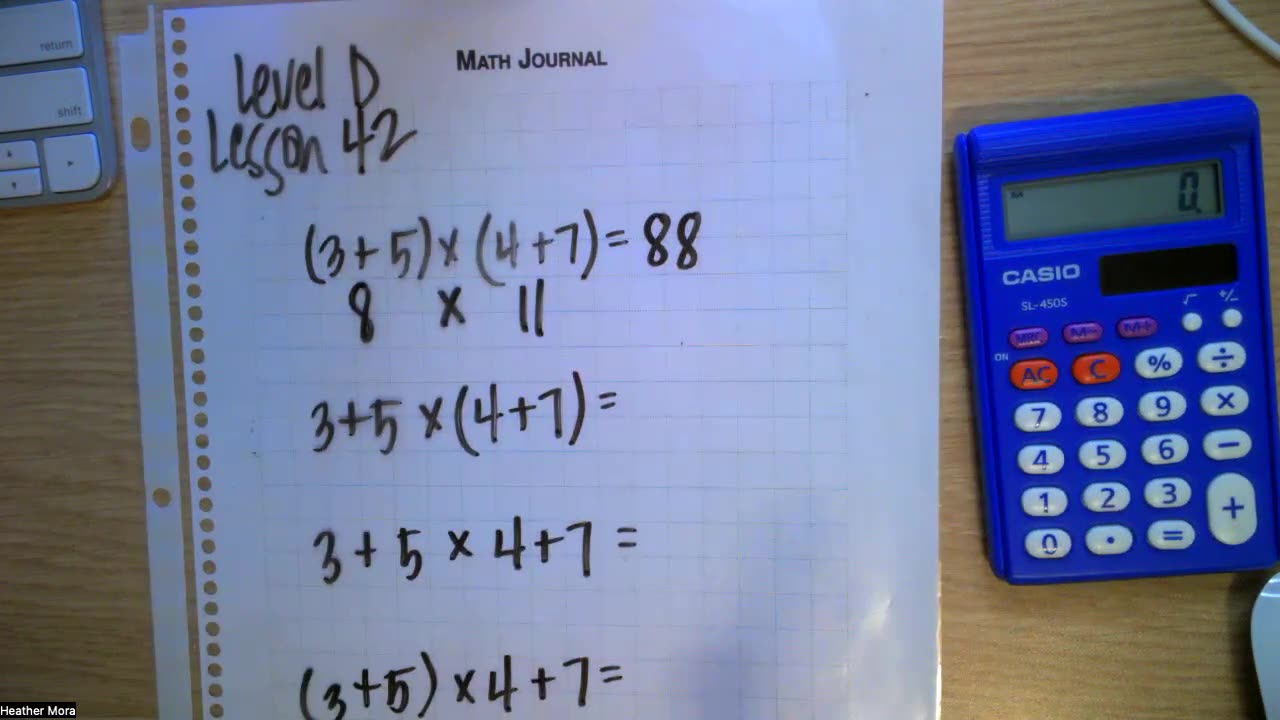 return
shift
MATH JOURNAL
Level D
Lesson 42
(3+5)×(4+7)=88
8 × 11
3+5×(4+7)=
3+5×4+7=
(3+5)×4+7=
0.
CASIO
SL-450S
√ +/−
MRC M− M+
ON
AC C % ÷
7 8 9 ×
4 5 6 −
1 2 3 +
0 · =
Heather Mora